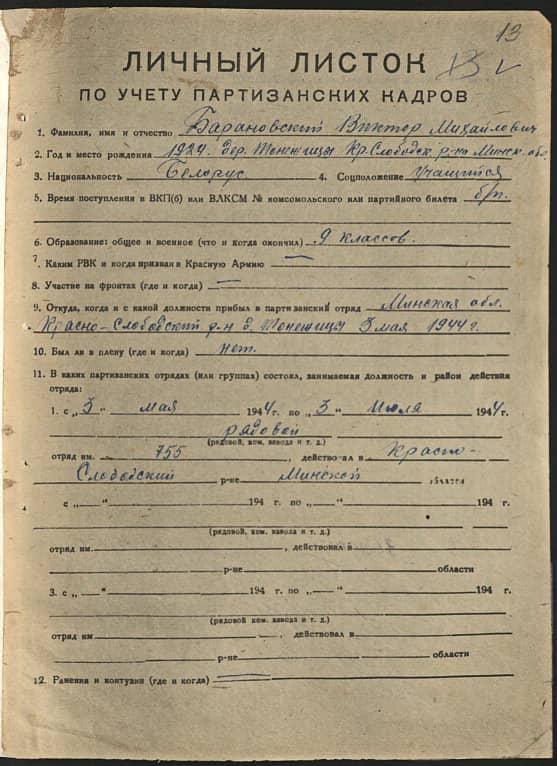 13
ЛИЧНЫЙ ЛИСТОК
ПО УЧЕТУ ПАРТИЗАНСКИХ КАДРОВ
1. Фамилия, имя и отчество Барановский Виктор Михайлович
2. Год и место рождения 1924. дер. Кр. Слободск. р-на Минск. обл.
3. Национальность Белорус 4. Соцположение Учащийся
5. Время поступления в ВКП(б) или ВЛКСМ № комсомольского или партийного билета б/п.
6. Образование: общее и военное (что и когда окончил) 9 классов.
7. Каким РВК и когда призван в Красную Армию —
8. Участие на фронтах (где и когда) —
9. Откуда, когда и с какой должности прибыл в партизанский отряд Минская обл.
Красно-Слободский р-н д. 3 мая 1944 г.
10. Был ли в плену (где и когда) нет.
11. В каких партизанских отрядах (или группах) состоял, занимаемая должность и район действия
отряда:
1. с „3“ мая 1944 г. по „3“ Июля 1944 г.
рядовой
(рядовой, ком. взвода и т. д.)
отряд им. 755, действовал в Красно-
Слободский р-не Минской области
с „—“ 194 г. по „—“ 194 г.
(рядовой, ком. взвода и т. д.)
отряд им. , действовал в
р-не области
3. с „—“ 194 г. по „—“ 194 г.
(рядовой ком. взвода и т. д.)
отряд им , действовал в
р-не области
12. Ранения и контузии (где и когда) —